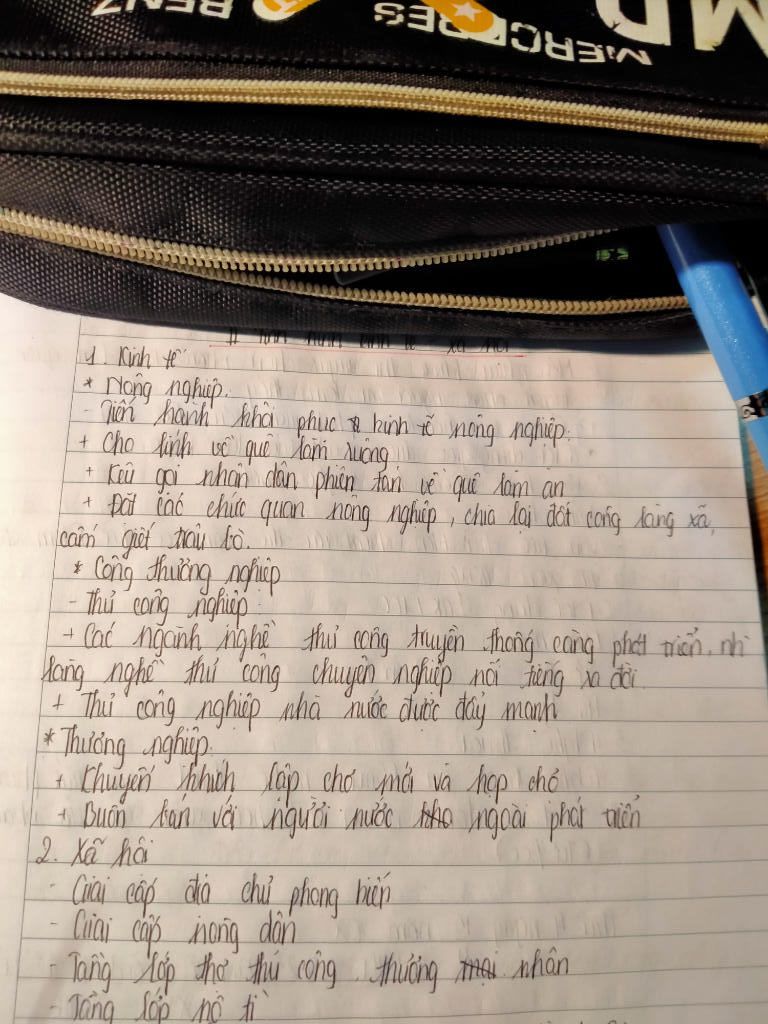 BENZ
MERCEDES
MD
II Tình hình kinh tế xã hội
1 Kinh tế
* Nông nghiệp.
- Tiến hành khôi phục kinh tế nông nghiệp:
+ Cho lính về quê làm ruộng
+ Kêu gọi nhân dân phiên tán về quê làm ăn
+ Đặt các chức quan nông nghiệp, chia lại đất công làng xã,
cấm giết trâu bò.
* Công thương nghiệp
- Thủ công nghiệp:
+ Các ngành nghề thủ công truyền thống càng phát triển, nh
làng nghề thủ công chuyên nghiệp nổi tiếng ra đời.
+ Thủ công nghiệp nhà nước được đẩy mạnh
* Thương nghiệp.
+ Khuyến khích lập chợ mới và họp chợ
+ Buôn bán với người nước ngoài phát triển
2. Xã hội
- Giai cấp địa chủ phong kiến
- Giai cấp nông dân
- Tầng lớp thợ thủ công, thương nhân
- Tầng lớp nô tì